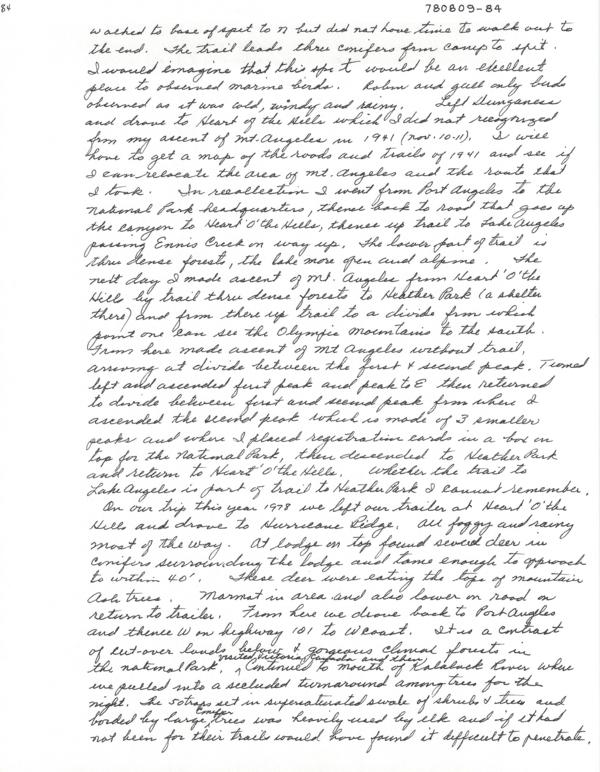 84
780809-84
walked to base of spit to N but did not have time to walk out to
the end. The trail leads thru conifers frm camp to spit.
I would imagine that this spit would be an exellent
place to observed marine birds. Robin and gull only birds
observed as it was cold, windy and rainy. Left Dungeness
and drove to Heart of the Hills which I did not recognized
frm my ascent of Mt. Angeles in 1941 (Nov. 10-11). I will
have to get a map of the roads and trails of 1941 and see if
I can relocate the area of Mt. Angeles and the route that
I took. In recollection I went from Port Angeles to the
National Park headquarters, thence back to road that goes up
the canyon to Heart 'O' the Hills, thence up trail to Lake Angeles
passing Ennis Creek on way up. The lower part of trail is
thru dense forests, the lake more open and alpine. The
next day I made ascent of Mt. Angeles from Heart 'O' the
Hills by trail thru dense forests to Heather Park (a shelter
there) and from there up trail to a divide frm which
point one can see the Olympic Mountains to the south.
From here made ascent of Mt Angeles without trail,
arriving at divide between the first & second peak. Turned
left and ascended first peak and peak to E then returned
to divide between first and second peak frm where I
ascended the second peak which is made of 3 smaller
peaks and where I placed registration cards in a box on
top for the National Park, then descended to Heather Park
and return to Heart 'O' the Hills. Whether the trail to
Lake Angeles is part of trail to Heather Park I cannot remember.
On our trip this year 1978 we left our trailer at Heart 'O' the
Hills and drove to Hurricane Ridge. All foggy and rainy
most of the way. At lodge on top found several deer in
conifers surrounding the lodge and tame enough to approach
to within 40'. These deer were eating the tops of mountain
Ash trees. Marmot in area and also lower on road on
return to trailer. From here we drove back to Port Angeles
and thence W on highway 101 to W coast. It is a contrast
of cut-over lands before & gorgeous climax forests in
the National Park. visited Victoria, Canada and then Continued to mouth of Kalalock River where
we pulled into a secluded turnaround among trees for the
night. The 50 traps set in supersaturated swale of shrubs & trees and
borded by large conifer trees was heavily used by elk and if it had
not been for their trails would have found it difficult to penetrate.